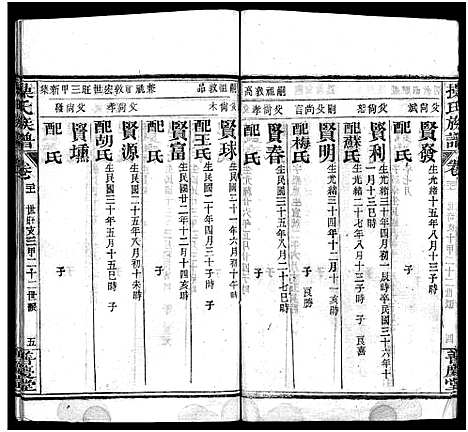 操氏族譜
卷
賢發
生光緒十五年八月十三子時
配 氏
子
賢利
生光緒三十四年四月初一辰時卒民國三十六年十一月十三巳時
配蘇氏
生光緒二十七年八月十三子時 子 良嘉
賢明
生光緒三十四年十月十一亥時
配梅氏
子 良勝
賢春
生民國二十年八月二十七巳時
配 氏
子
賢球
生民國二十一年六月初十未時
配王氏
生民國二十年四月三十子時 子
賢富
生民國廿二年十二月十四亥時
配 氏
子
賢源
生民國二十五年八月初十未時
配胡氏
生民國三十年五月十五巳時 子
賢壎
配 氏
子
操氏族譜
卷
世旺支三甲二十二世 五
善慶堂